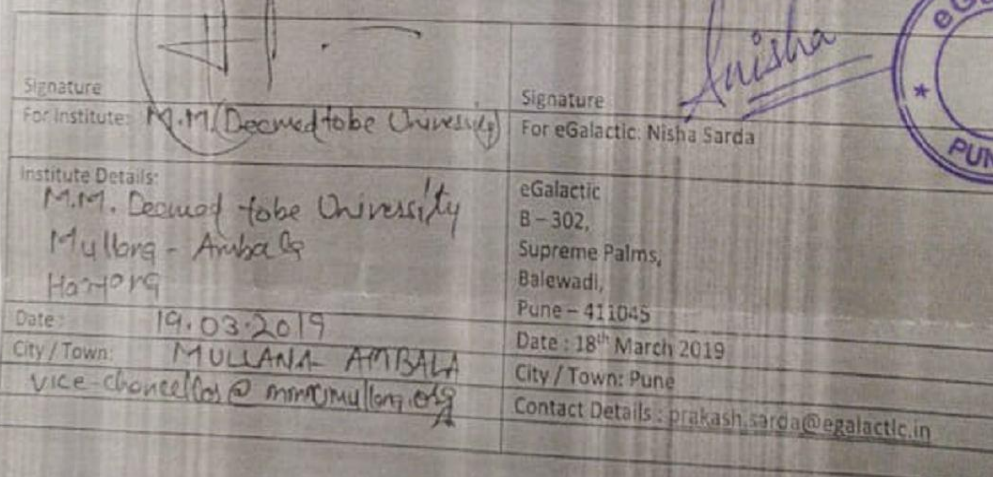 Signature
For Institute: M.M.(Deemed to be University)
Institute Details:
M.M. Deemed to be University
Mullana - Ambala
Haryana
Date : 19.03.2019
City / Town: MULLANA AMBALA
vice-chancellor@mmumullana.org
Anisha
Signature
For eGalactic: Nisha Sarda
eGalactic
B – 302,
Supreme Palms,
Balewadi,
Pune – 411045
Date : 18th March 2019
City / Town: Pune
Contact Details : prakash.sarda@egalactic.in
eG
* PUN